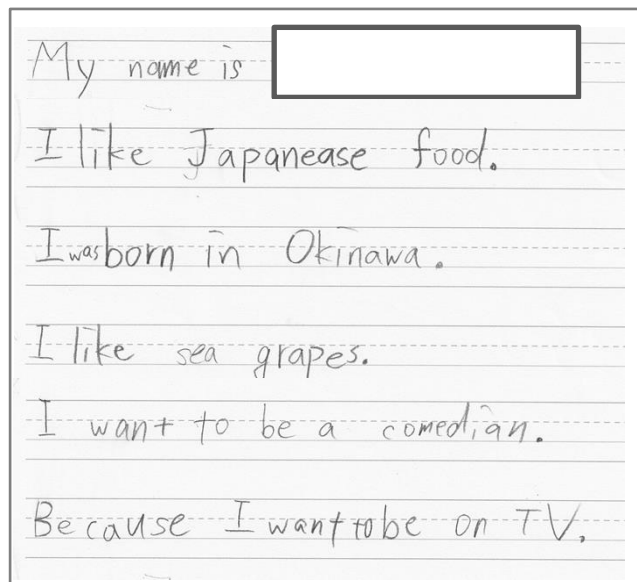 My name is
I like Japanease food.
I was born in Okinawa.
I like sea grapes.
I want to be a comedian.
Because I want to be on TV.